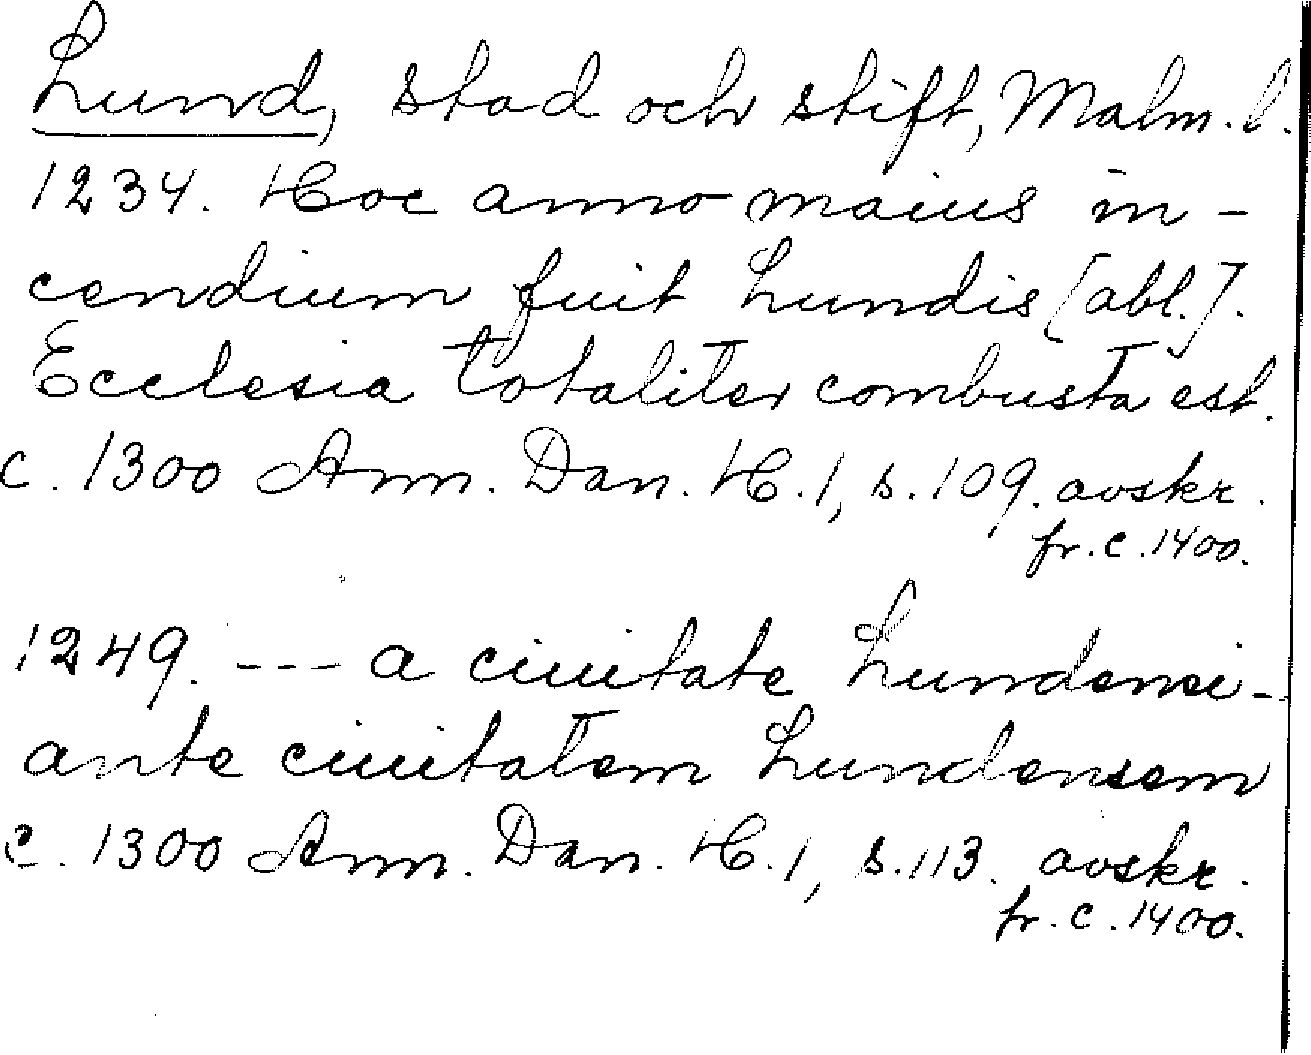 Lund, stad och stift, Malm. l.
1234. Hoc anno maius in-
cendium fuit Lundis [abl.].
Ecclesia totaliter combusta est.
c. 1300 Ann. Dan. H. 1, s. 109. avskr.
fr. c. 1400.
1249. --- a ciuitate Lundensi -
ante ciuitatem Lundensem
c. 1300 Ann. Dan. H. 1, s. 113. avskr.
fr. c. 1400.